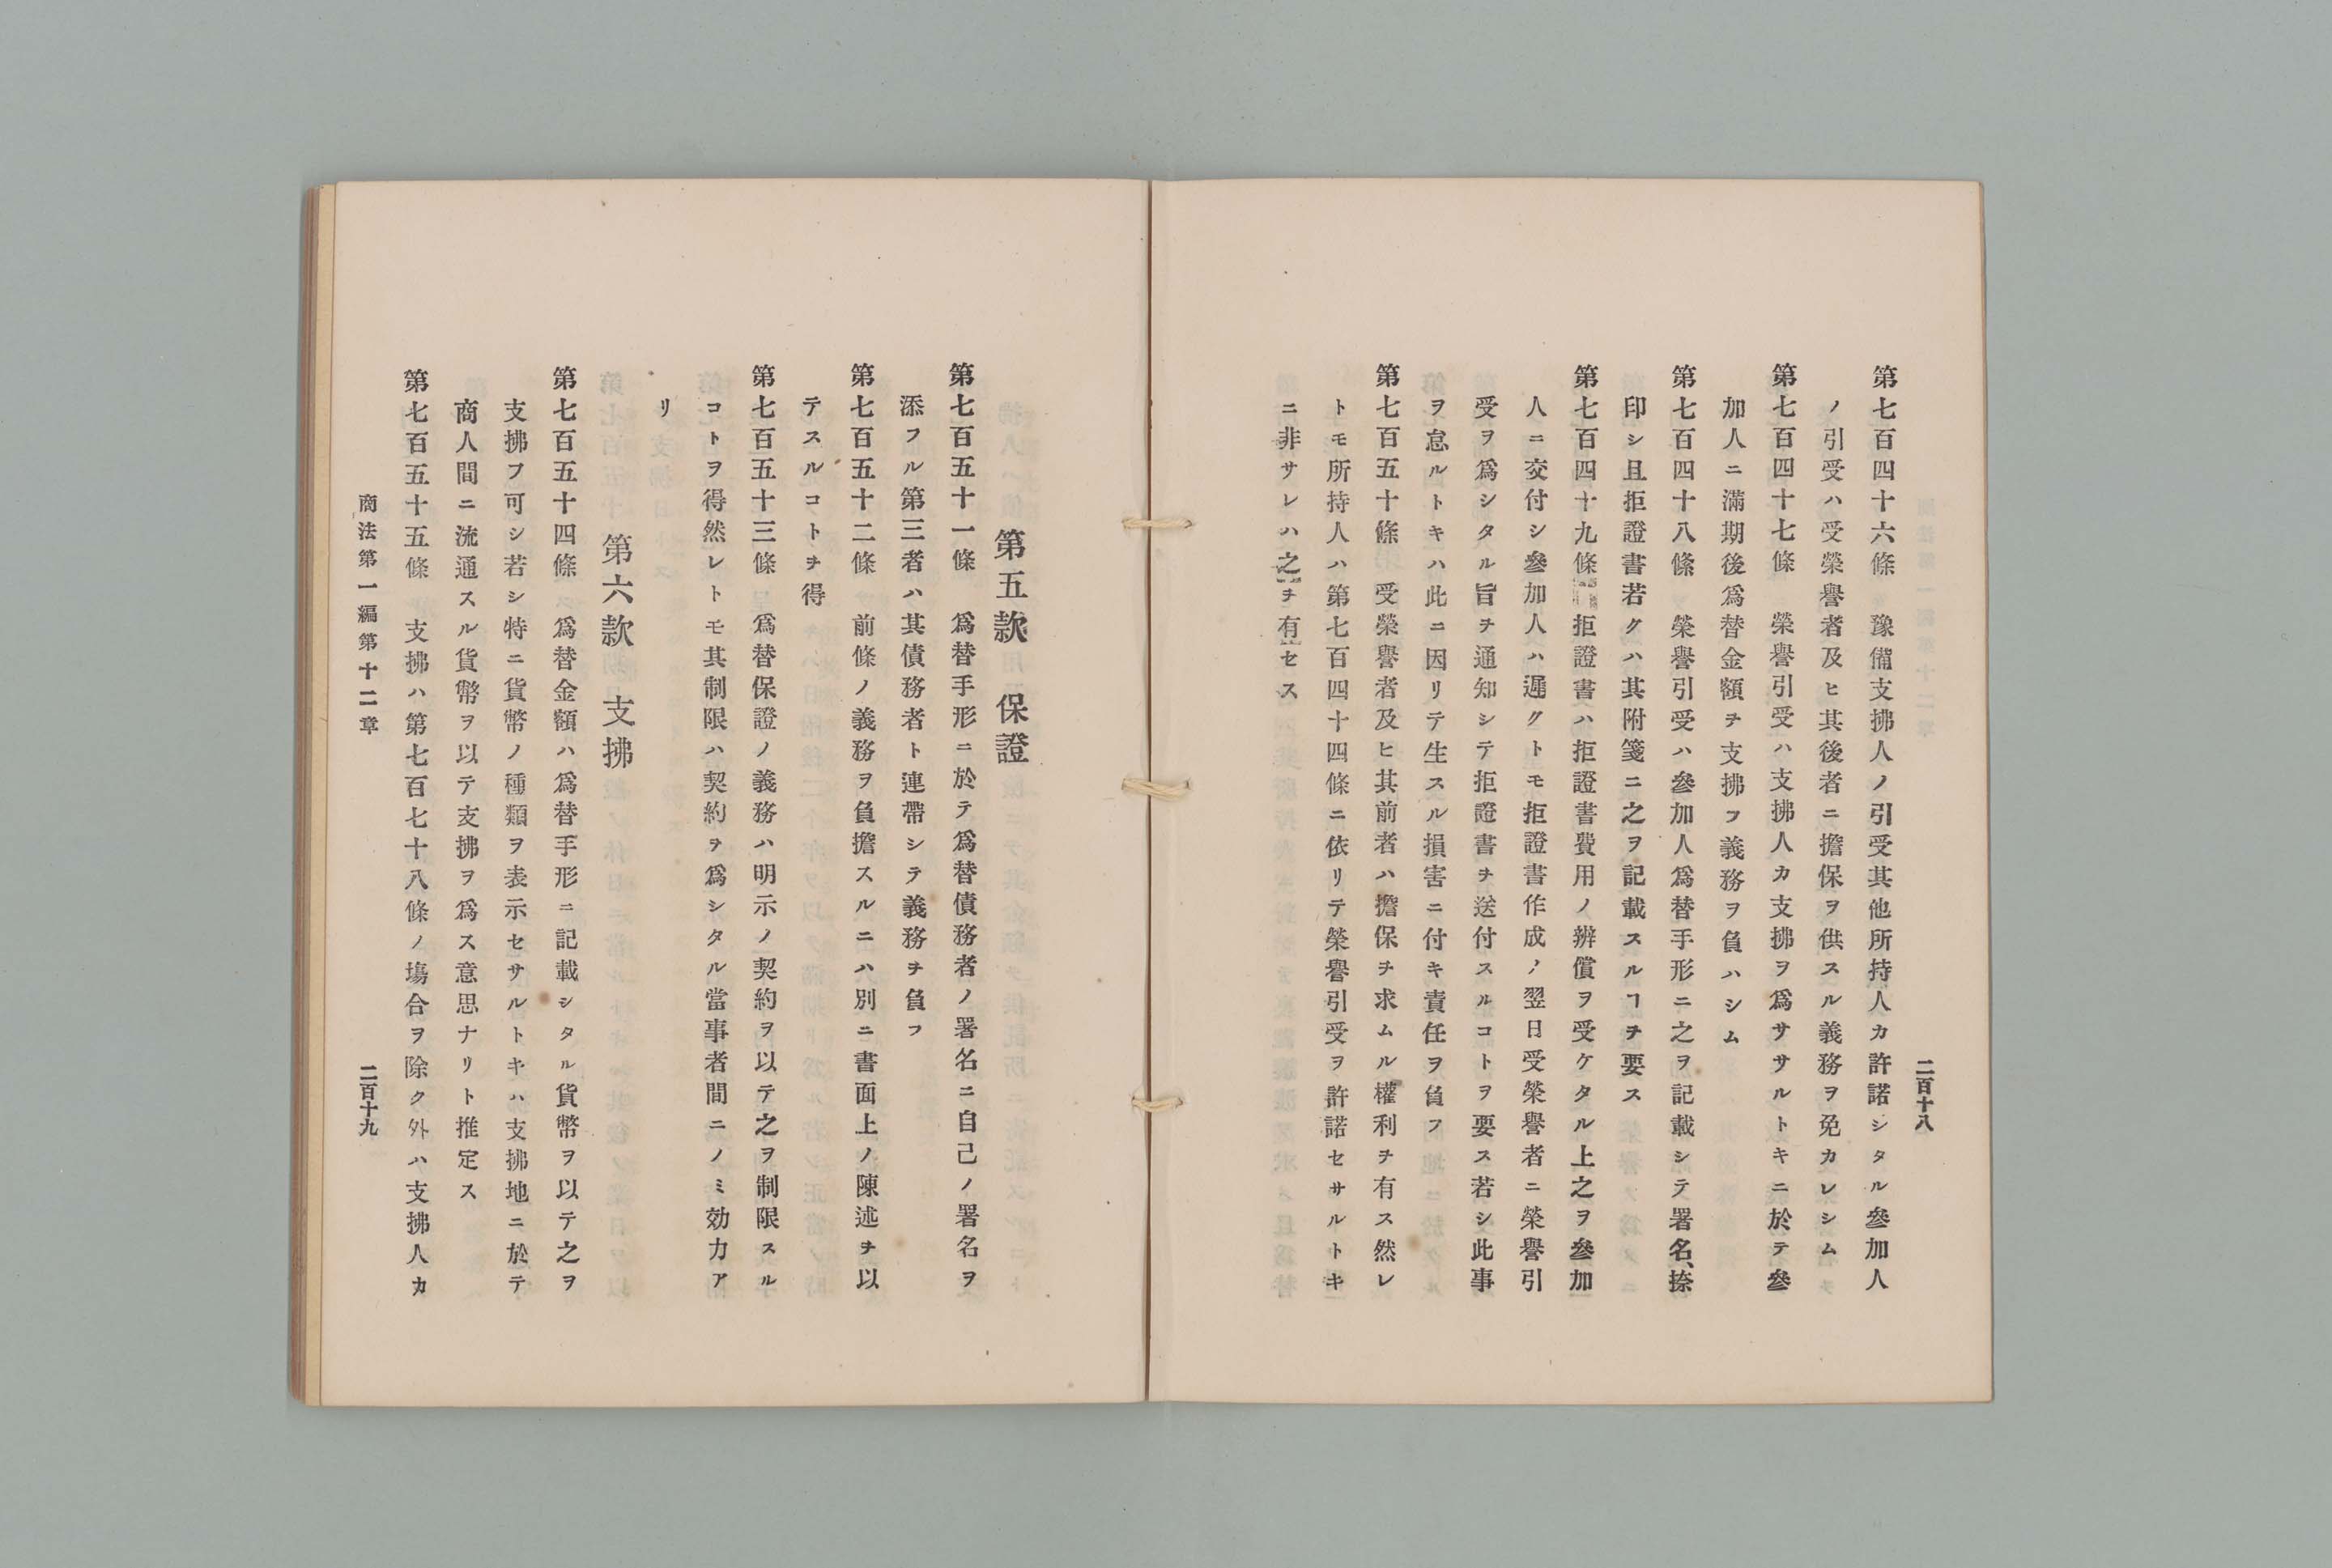 二百十八
第七百四十六條　豫備支拂人ノ引受其他所持人カ許諾シタル參加人
ノ引受ハ受榮譽者及ヒ其後者ニ擔保ヲ供スル義務ヲ免カレシム
第七百四十七條　榮譽引受ハ支拂人カ支拂ヲ爲サヽルトキニ於テ參
加人ニ滿期後爲替金額ヲ支拂フ義務ヲ負ハシム
第七百四十八條　榮譽引受ハ參加人爲替手形ニ之ヲ記載シテ署名、捺
印シ且拒證書若クハ其附箋ニ之ヲ記載スルヿヲ要ス
第七百四十九條　拒證書ハ拒證書費用ノ辨償ヲ受ケタル上之ヲ參加
人ニ交付シ參加人ハ遲クトモ拒證書作成ノ翌日受榮譽者ニ榮譽引
受ヲ爲シタル旨ヲ通知シテ拒證書ヲ送付スルコトヲ要ス若シ此事
ヲ怠ルトキハ此ニ因リテ生スル損害ニ付キ責任ヲ負フ
第七百五十條　受榮譽者及ヒ其前者ハ擔保ヲ求ムル權利ヲ有ス然レ
トモ所持人ハ第七百四十四條ニ依リテ榮譽引受ヲ許諾セサルトキ
ニ非サレハ之ヲ有セス
第五款　保證
第七百五十一條　爲替手形ニ於テ爲替債務者ノ署名ニ自己ノ署名ヲ
添フル第三者ハ其債務者ト連帶シテ義務ヲ負フ
第七百五十二條　前條ノ義務ヲ負擔スルニハ別ニ書面上ノ陳述ヲ以
テスルコトヲ得
第七百五十三條　爲替保證ノ義務ハ明示ノ契約ヲ以テ之ヲ制限スル
コトヲ得然レトモ其制限ハ契約ヲ爲シタル當事者間ニノミ効力ア
リ
第六款　支拂
第七百五十四條　爲替金額ハ爲替手形ニ記載シタル貨幣ヲ以テ之ヲ
支拂フ可シ若シ特ニ貨幣ノ種類ヲ表示セサルトキハ支拂地ニ於テ
商人間ニ流通スル貨幣ヲ以テ支拂ヲ爲ス意思ナリト推定ス
第七百五十五條　支拂ハ第七百七十八條ノ塲合ヲ除ク外ハ支拂人カ
商法第一編第十二章
二百十九